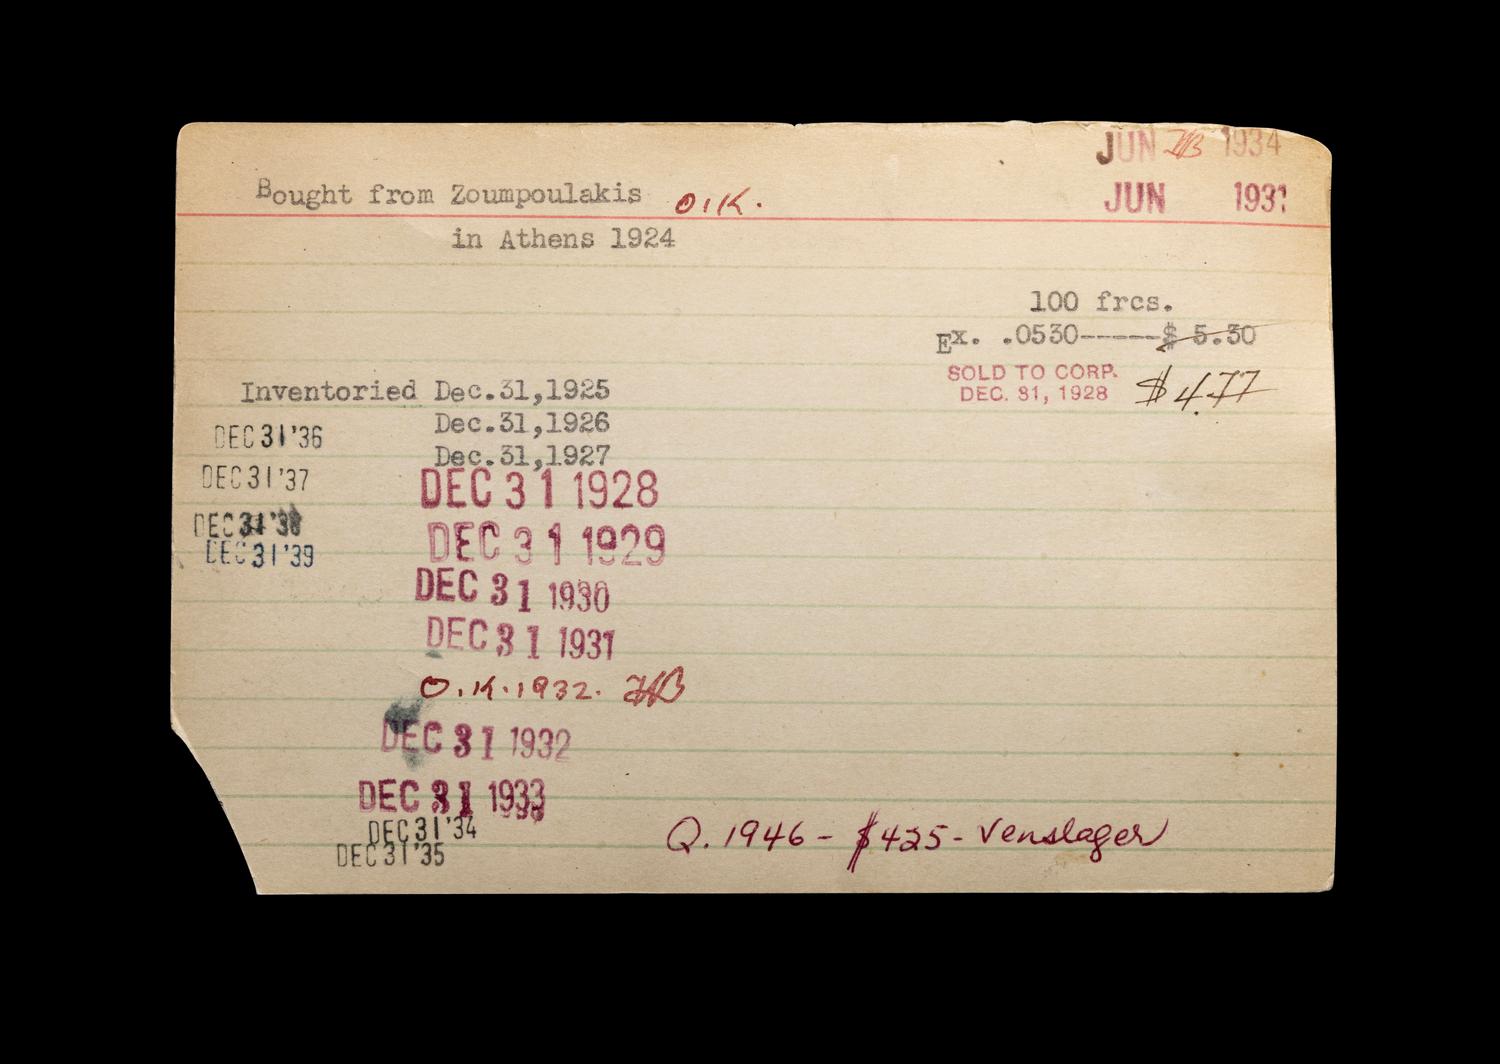 JUN HB 1934
Bought from Zoumpoulakis O.K.
JUN 1931
in Athens 1924
100 frcs.
Ex. .0530-----$ 5.30
SOLD TO CORP.
DEC. 31, 1928
$ 4.77
Inventoried Dec.31,1925
Dec.31,1926
Dec.31,1927
DEC 31 1928
DEC 31 1929
DEC 31 1930
DEC 31 1931
O.K. 1932. HB
DEC 31 1932
DEC 31 1933
DEC 31 '34
DEC 31 '35
DEC 31 '36
DEC 31 '37
DEC 31 '38
DEC 31 '39
Q. 1946 - $425 - Venslager